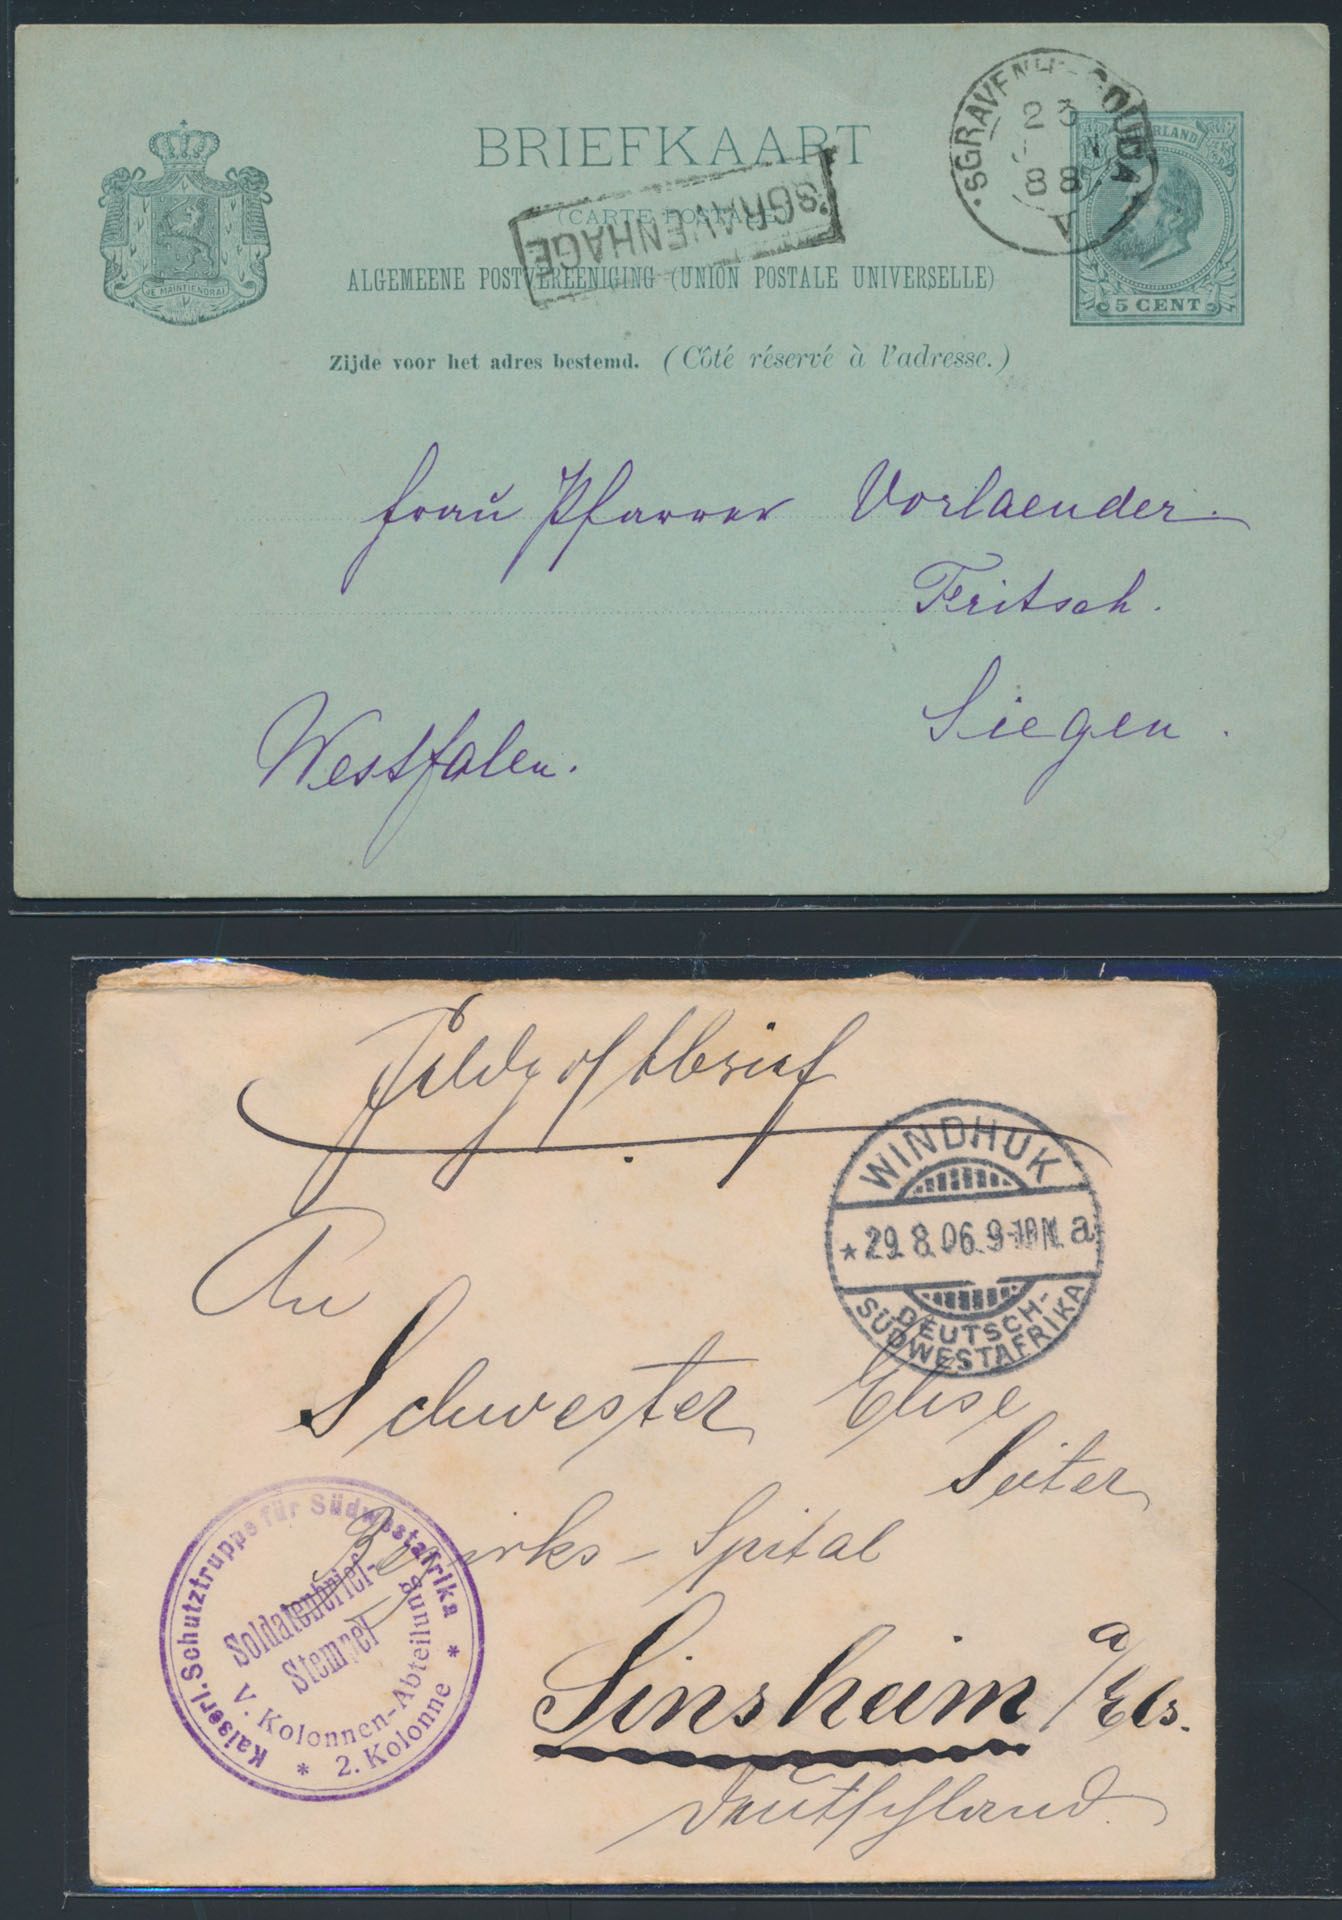 BRIEFKAART
(CARTE POSTALE)
ALGEMEENE POSTVEREENIGING (UNION POSTALE UNIVERSELLE)
Zijde voor het adres bestemd. (Côté réservé à l'adresse.)
JE MAINTIENDRAI
'SGRAVENHAGE
·SGRAVENH-GOUDA·
23
88
V
5 CENT
Frau Pfarrer Vorlaender.
Fritsch.
Siegen.
Westfalen.
Feldpostbrief
WINDHUK
* 29.8.06.9-10N. a
DEUTSCH-
SÜDWESTAFRIKA
An
Schwester Elise
Seiter
Bezirks-Spital
Sinsheim a/Els.
Deutschland.
Kaiserl. Schutztruppe für Südwestafrika
Soldatenbrief-
Stempel
V. Kolonnen-Abteilung
* 2. Kolonne *